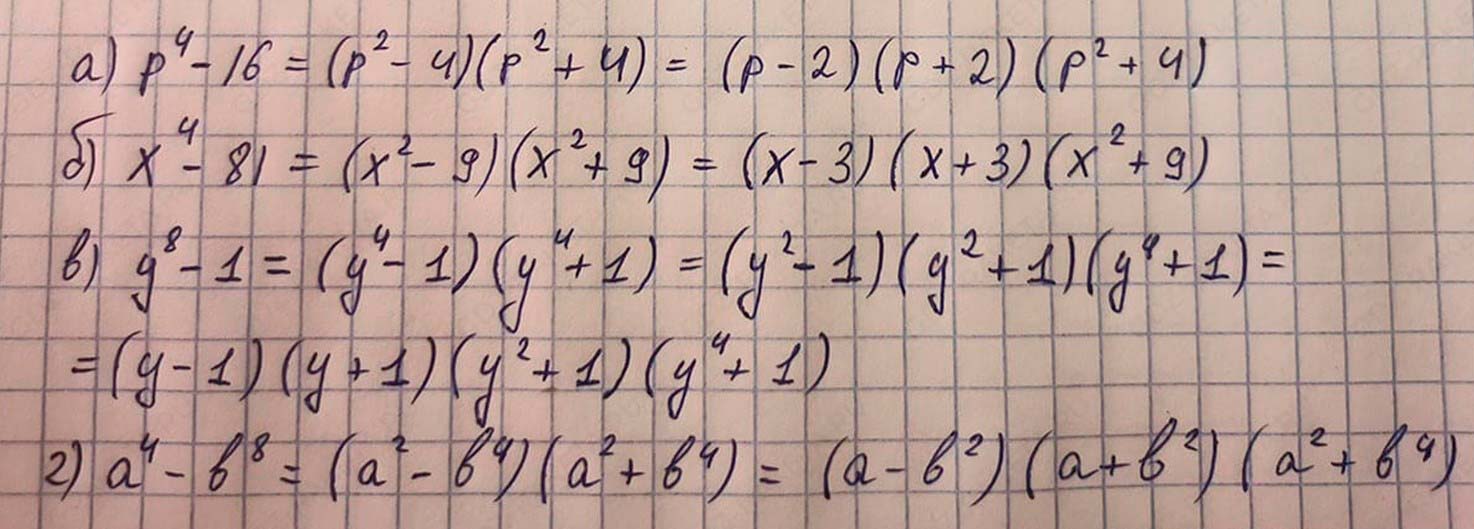 а) p⁴ - 16 = (p² - 4)(p² + 4) = (p - 2)(p + 2)(p² + 4)
б) x⁴ - 81 = (x² - 9)(x² + 9) = (x - 3)(x + 3)(x² + 9)
в) y⁸ - 1 = (y⁴ - 1)(y⁴ + 1) = (y² - 1)(y² + 1)(y⁴ + 1) =
= (y - 1)(y + 1)(y² + 1)(y⁴ + 1)
г) a⁴ - b⁸ = (a² - b⁴)(a² + b⁴) = (a - b²)(a + b²)(a² + b⁴)